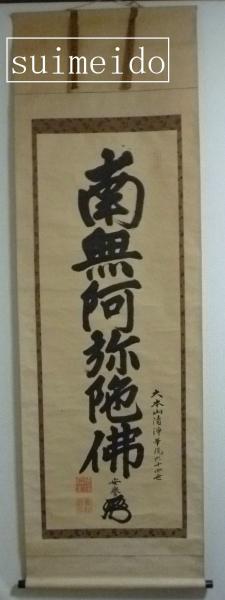 suimeido
南無阿弥陀佛
大本山清浄華院六十四世